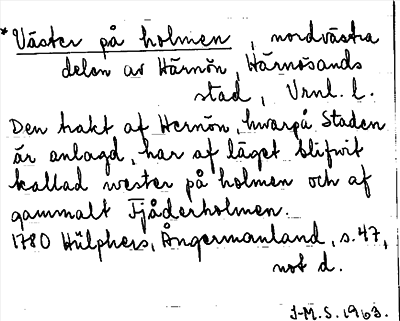 * Väster på holmen, nordvästra
delen av Härnön, Härnösands
stad, Vrnl. l.
Den trakt af Hernön, hvarpå Staden
är anlagd, har af läget blifvit
kallad wester på holmen och af
gammalt Fjåderholmen.
1780 Hülphers, Ångermanland, s. 47,
not d.
J-M. S. 1963.